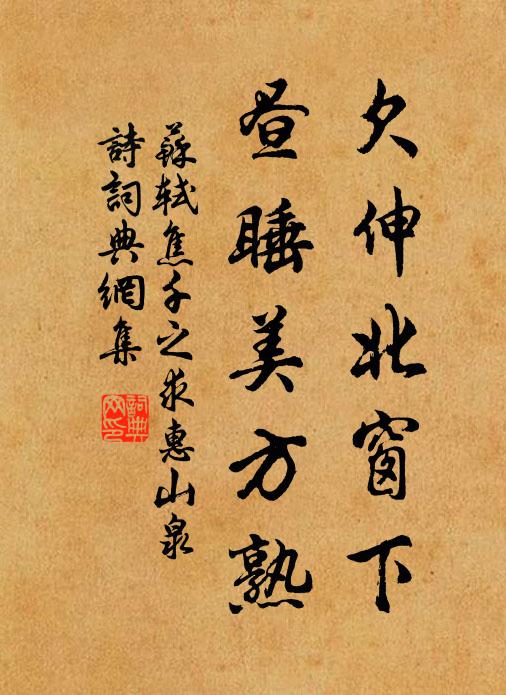 欠伸北窗下
昼睡美方熟
蘇軾焦千之求惠山泉
詩詞典網集
詞典網印